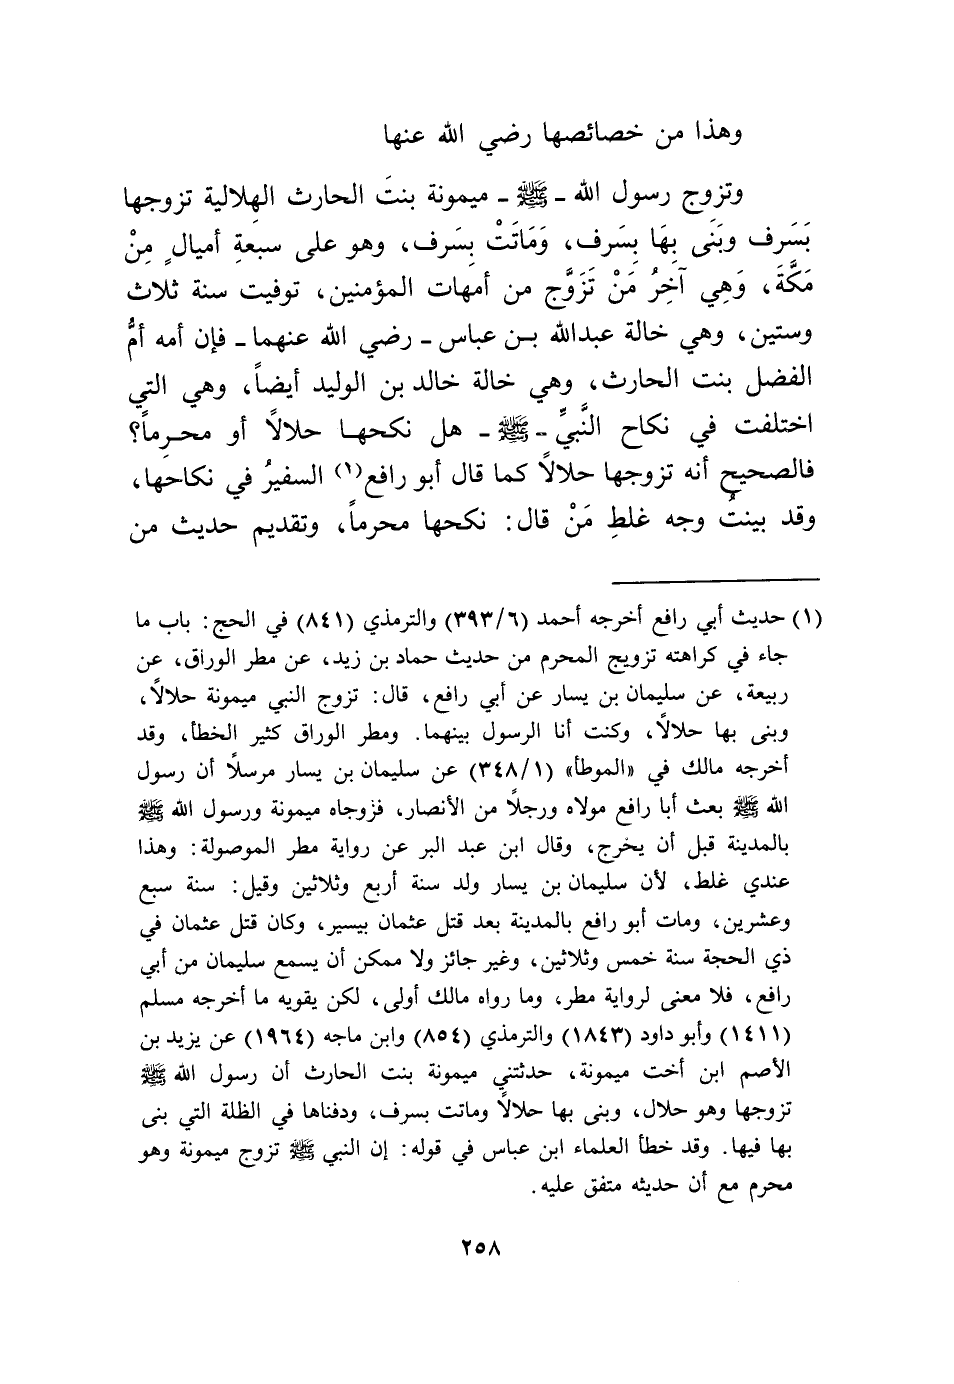 وهذا من خصائصها رضي الله عنها
وتزوج رسول الله ـ ﷺ ـ ميمونة بنتَ الحارث الهِلالية تزوجها
بَسَرف وبَنَى بِهَا بِسَرف، وَمَاتَتْ بِسَرف، وهو على سبعَةِ أميالٍ مِنْ
مَكَّةَ، وَهِي آخِرُ مَنْ تَزَوَّج من أمهات المؤمنين، توفيت سنة ثلاث
وستين، وهي خالة عبدالله بـن عباس ـ رضي الله عنهما ـ فإن أمه أمُّ
الفضل بنت الحارث، وهي خالة خالد بن الوليد أيضاً، وهي التي
اختلفت في نكاح النَّبيِّ ـ ﷺ ـ هل نكحهـا حلالاً أو محـرِماً؟
فالصحيح أنه تزوجها حلالاً كما قال أبو رافع(١) السفيرُ في نكاحها،
وقد بينتُ وجه غلطِ مَنْ قال: نكحها محرماً، وتقديم حديث من
(١) حديث أبي رافع أخرجه أحمد (٣٩٣/٦) والترمذي (٨٤١) في الحج: باب ما
جاء في كراهته تزويج المحرم من حديث حماد بن زيد، عن مطر الوراق، عن
ربيعة، عن سليمان بن يسار عن أبي رافع، قال: تزوج النبي ميمونة حلالاً،
وبنى بها حلالاً، وكنت أنا الرسول بينهما. ومطر الوراق كثير الخطأ، وقد
أخرجه مالك في «الموطأ» (٣٤٨/١) عن سليمان بن يسار مرسلاً أن رسول
الله ﷺ بعث أبا رافع مولاه ورجلاً من الأنصار، فزوجاه ميمونة ورسول الله ﷺ
بالمدينة قبل أن يخرج، وقال ابن عبد البر عن رواية مطر الموصولة: وهذا
عندي غلط، لأن سليمان بن يسار ولد سنة أربع وثلاثين وقيل: سنة سبع
وعشرين، ومات أبو رافع بالمدينة بعد قتل عثمان بيسير، وكان قتل عثمان في
ذي الحجة سنة خمس وثلاثين، وغير جائز ولا ممكن أن يسمع سليمان من أبي
رافع، فلا معنى لرواية مطر، وما رواه مالك أولى، لكن يقويه ما أخرجه مسلم
(١٤١١) وأبو داود (١٨٤٣) والترمذي (٨٥٤) وابن ماجه (١٩٦٤) عن يزيد بن
الأصم ابن أخت ميمونة، حدثتني ميمونة بنت الحارث أن رسول الله ﷺ
تزوجها وهو حلال، وبنى بها حلالاً وماتت بسرف، ودفناها في الظلة التي بنى
بها فيها. وقد خطأ العلماء ابن عباس في قوله: إن النبي ﷺ تزوج ميمونة وهو
محرم مع أن حديثه متفق عليه.
٢٥٨